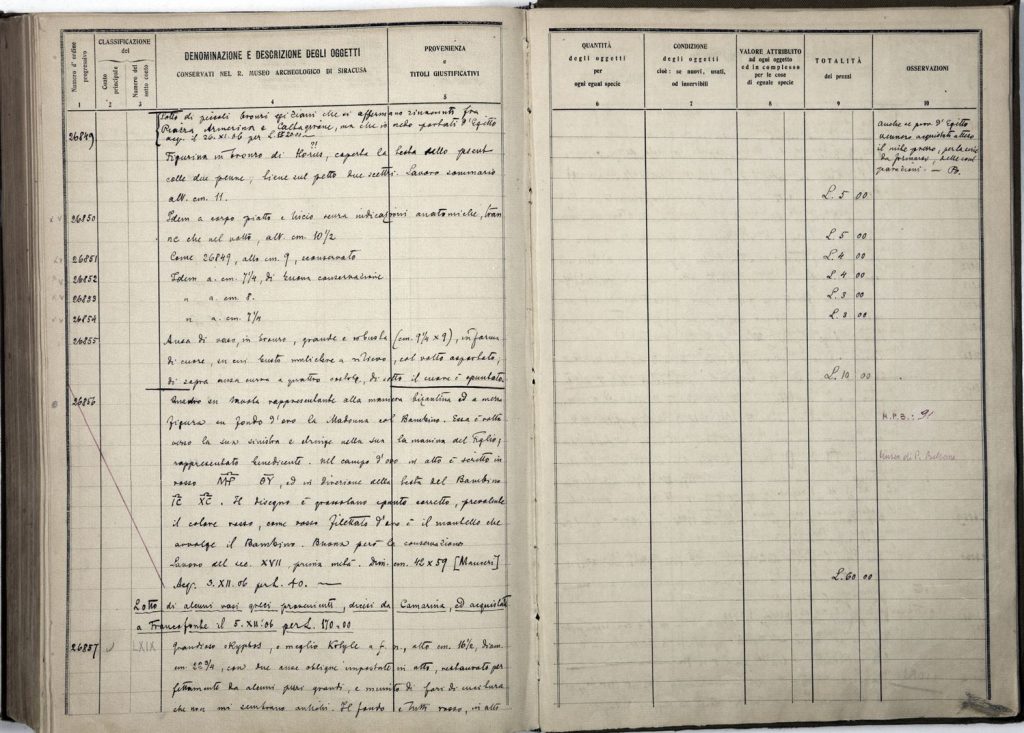 Numero d'ordine progressivo
CLASSIFICAZIONE
del
Conto principale
Numero del sotto conto
DENOMINAZIONE E DESCRIZIONE DEGLI OGGETTI
CONSERVATI NEL R. MUSEO ARCHEOLOGICO DI SIRACUSA
PROVENIENZA
e
TITOLI GIUSTIFICATIVI
1 2 3 4 5
Lotto di piccoli bronzi egiziani che si affermano rinvenuti fra
Piazza Armerina e Caltagirone, ma che io credo portati d'Egitto
acq. il 26. XI. 06 per L.
26849
Figurina in bronzo di Horus, coperta la testa dello pscent
colle due penne; tiene sul petto due scettri. Lavoro sommario
alt. cm. 11.
26850 Idem a corpo piatto e liscio senza indicazioni anatomiche, tran
ne che nel volto, alt. cm. 10 1/2
26851 Come 26849, alto cm. 9, conservato
26852 Idem a. cm. 7 1/4, di buona conservazione
26853 " a. cm. 8.
26854 " a. cm. 7 1/4
26855 Ansa di vaso, in bronzo, grande e robusta (cm. 9 1/4 x 9), in forma
di cuore, su cui busto muliebre a rilievo, col volto asportato,
di sopra ansa curva a quattro costole, di sotto il cuore è spuntato.
26856 Quadro su tavola rappresentante alla maniera bizantina ed a mezza
figura su fondo d'oro la Madonna col Bambino. Essa è volta
verso la sua sinistra e stringe nella sua la manina del Figlio,
rappresentato benedicente. Nel campo d'oro in alto è scritto in
rosso ΜΡ ΘΥ, ed in direzione della testa del Bambino
IC XC. Il disegno è grossolano e punto corretto, prevalente
il colore rosso, come rosso filettato d'oro è il mantello che
avvolge il Bambino. Buona però la conservazione
Lavoro del sec. XVII prima metà. Dim. cm. 42 x 59 [Mauceri]
Acq. 3. XII. 06 per L. 40. —
Lotto di alcuni vasi greci provenienti, dicesi da Camarina, ed acquistati
a Francofonte il 5. XII. 06 per L. 170=00
26857 LXIX Grandioso skyphos, o meglio Kotyle a f. n., alto cm. 16 1/2, diam.
cm. 22 3/4, con due anse oblique impostate in alto, restaurato per
fettamente da alcuni pezzi grandi, e munito di fori di cucitura
che non mi sembrano antichi. Il fondo è tutto rosso, in alto
QUANTITÀ
degli oggetti
per
ogni egual specie
CONDIZIONE
degli oggetti
cioè: se nuovi, usati,
od inservibili
VALORE ATTRIBUITO
ad ogni oggetto
ed in complesso
per le cose
di eguale specie
TOTALITÀ
dei prezzi
OSSERVAZIONI
6 7 8 9 10
Anche se prov. d'Egitto
vennero acquistati atteso
il mite prezzo, per la serie
da formarsi, delle com
parazioni. —
L. 5 00
L. 5 00
L. 4 00
L. 4 00
L. 3 00
L. 3 00
L. 10 00
91
L. 60 00